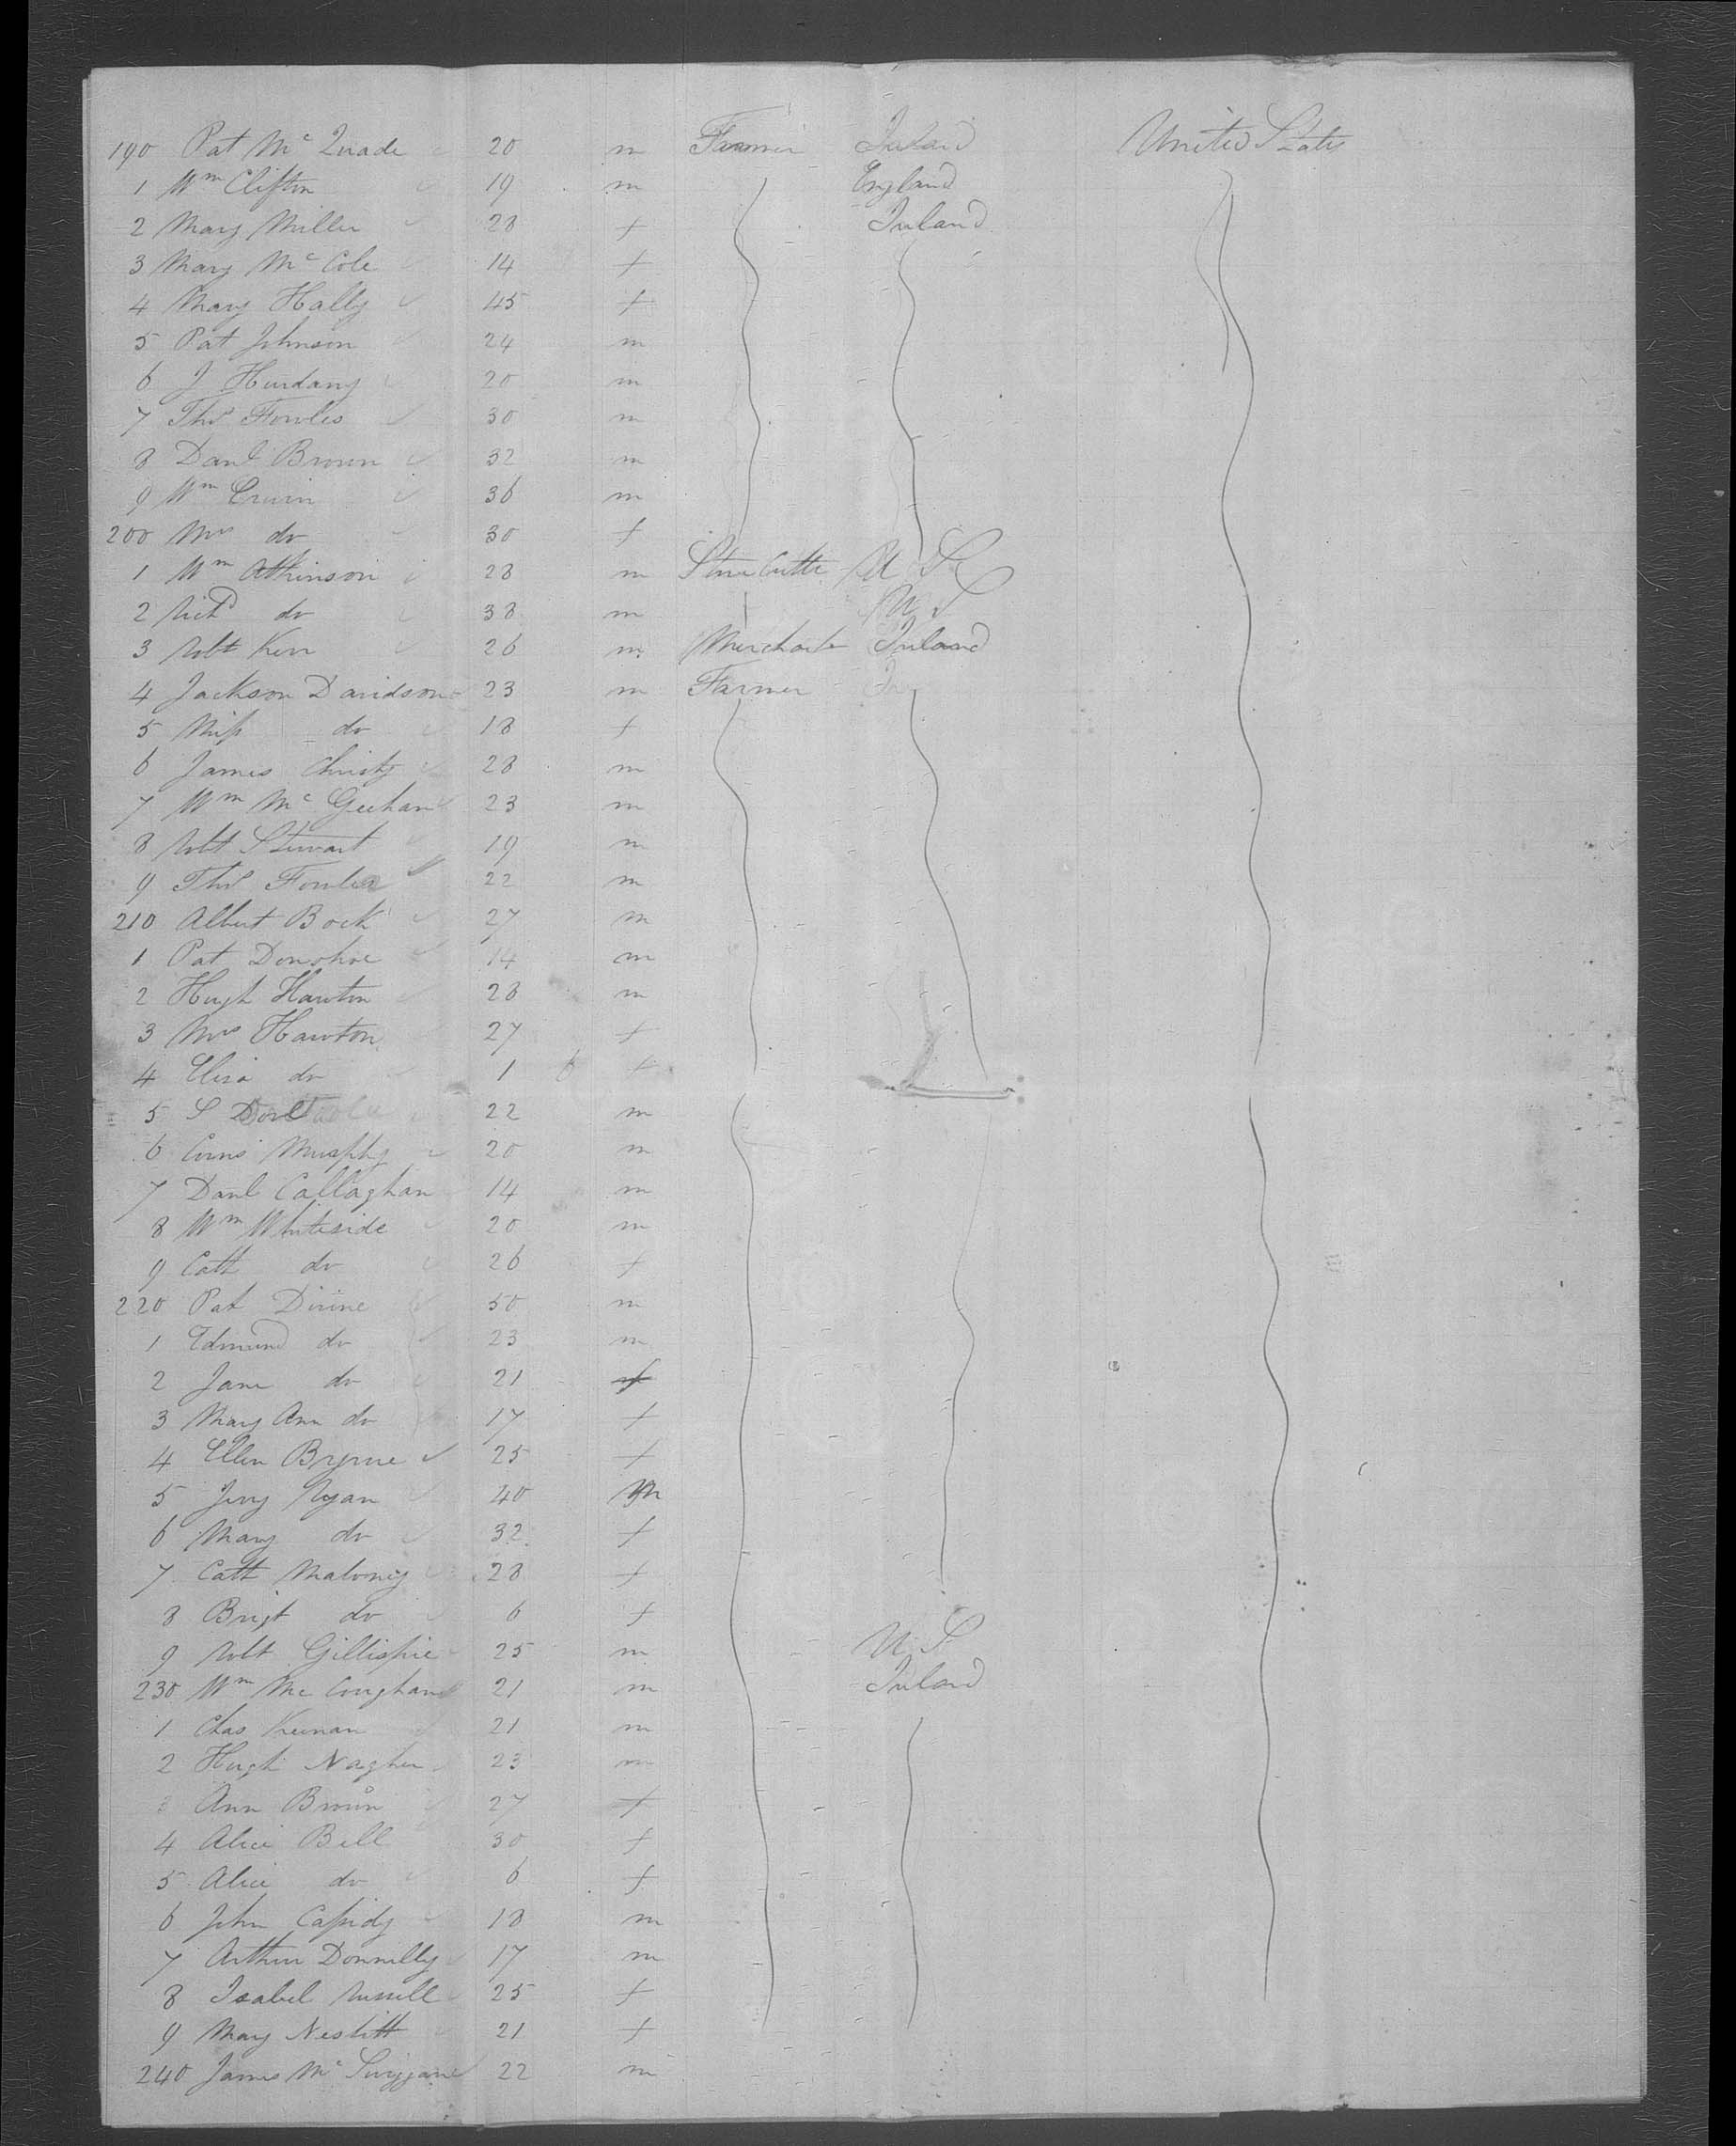 190 Pat Mc Quade 20 m Farmer Ireland United States
1 Wm Clifton 19 m England
2 Mary Miller 28 f Ireland
3 Mary Mc Cole 14 f
4 Mary Hally 45 f
5 Pat Johnson 24 m
6 J 20 m
7 Thos Fowles 30 m
8 Danl Brown 32 m
9 Wm 36 m
200 Mrs do 30 f
1 Wm Atkinson 28 m Stone Cutter U S
2 Richd do 38 m U S
3 Robt Kerr 26 m Merchant Ireland
4 Jackson Davidson 23 m Farmer
5 Miss do 18 f
6 James Christy 28 m
7 Wm Mc Geehan 23 m
8 Robt Stewart 19 m
9 Thos 22 m
210 Albert Bock 27 m
1 Pat Donohoe 14 m
2 Hugh Hawton 28 m
3 Mrs Hawton 27 f
4 Eliza do 1 6 f
5 S 22 m
6 Murphy 20 m
7 Danl Callaghan 14 m
8 Wm Whiteside 20 m
9 Cath do 26 f
220 Pat Divine 50 m
1 Edmund do 23 m
2 Jane do 21 f
3 Mary Ann do 17 f
4 Ellen Bryrne 25 f
5 Jerry Ryan 40 m
6 Mary do 32 f
7 Cath Maloney 28 f
8 Brigt do 6 f
9 Robt Gillispie 25 m U S
230 Wm Mc Coughan 21 m Ireland
1 Chas Keenan 21 m
2 Hugh 23 m
3 Ann Brown 27 f
4 Alice Bell 30 f
5 Alice do 6 f
6 John Cassidy 18 m
7 Arthur Donnelly 17 m
8 Isabel Russell 25 f
9 Mary Nesbitt 21 f
240 James Mc 22 m